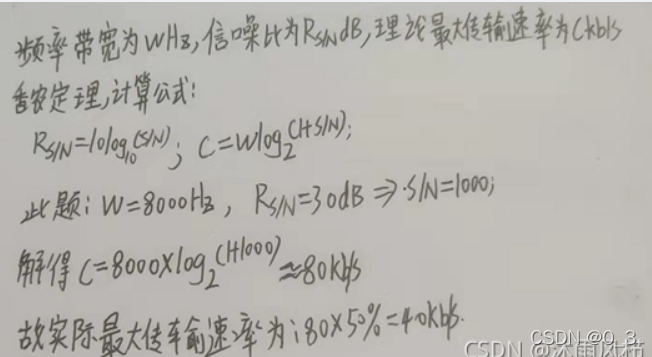 频率带宽为WHz,信噪比为RS/NdB,理论最大传输速率为Ckb/s
香农定理,计算公式:
RS/N=10log10(S/N); C=Wlog2(1+S/N);
此题:W=8000Hz, RS/N=30dB⇒S/N=1000;
解得C=8000×log2(1+1000)≈80kb/s
故实际最大传输速率为:80×50%=40kb/s.
CSDN @0_3